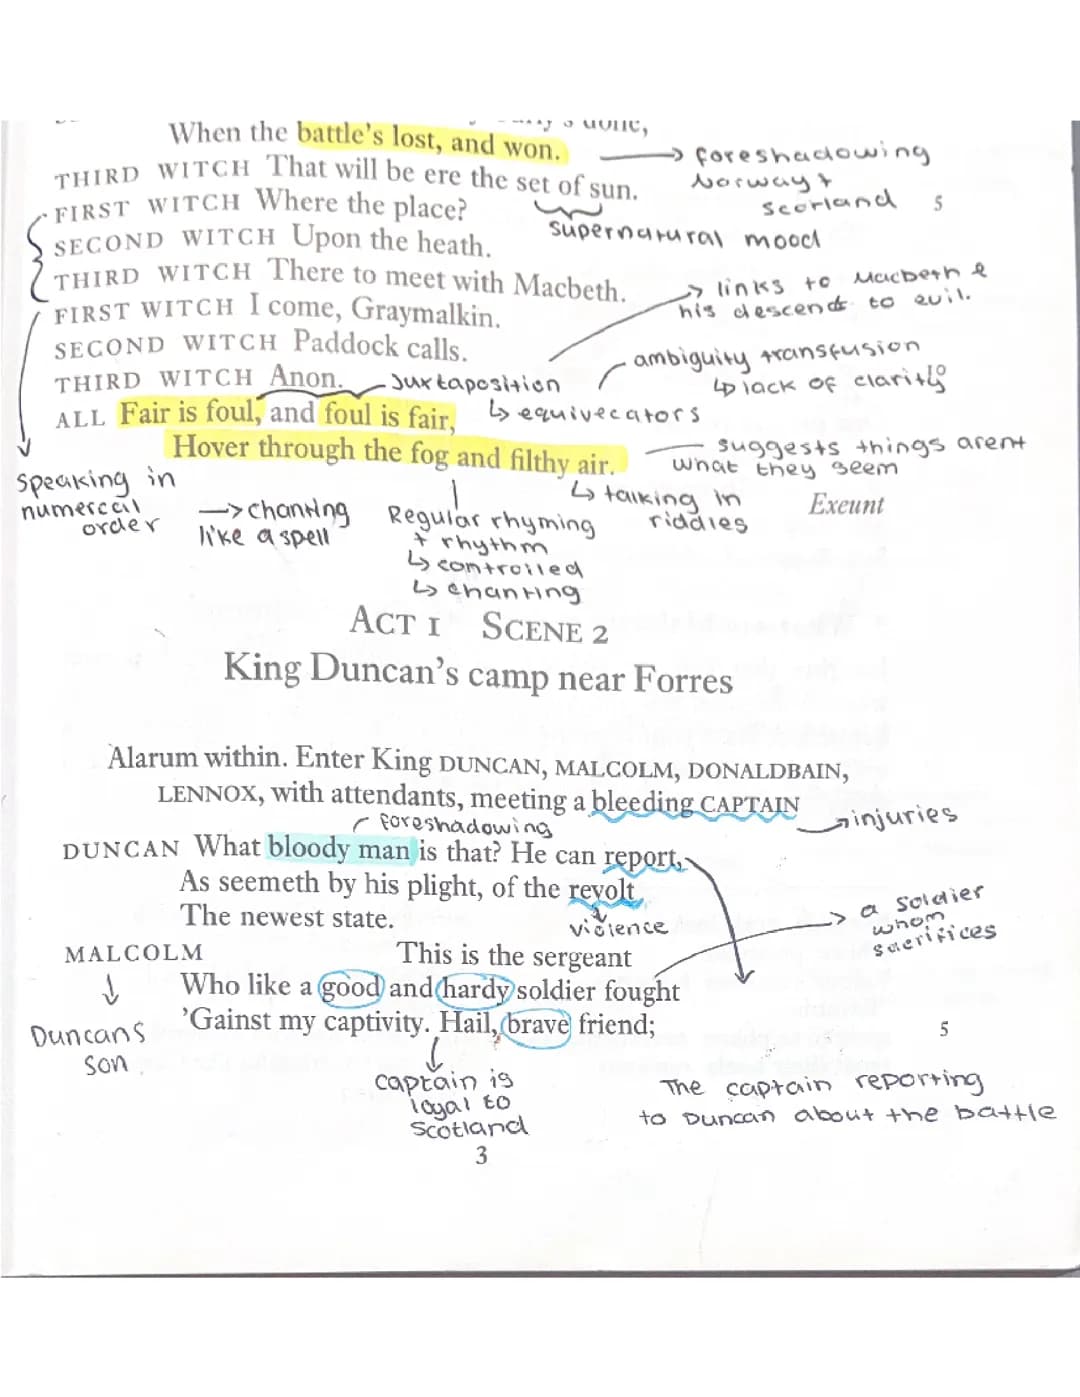 done,
When the battle's lost, and won.
foreshadowing
Norway +
Scorland
THIRD WITCH That will be ere the set of sun.
5
supernatural mood
FIRST WITCH Where the place?
SECOND WITCH Upon the heath.
THIRD WITCH There to meet with Macbeth.
links to Macbeth &
his descends to evil.
FIRST WITCH I come, Graymalkin.
SECOND WITCH Paddock calls.
ambiguity transfusion
lack of clarity
10
THIRD WITCH Anon.
Juxtaposition
equivecators
ALL Fair is foul, and foul is fair,
Hover through the fog and filthy air.
suggests things arent
what they seem
talking in
riddles
Exeunt
speaking in
numerccal
order
chanting
like a spell
Regular rhyming
+ rhythm
controlled
chanting
ACT I SCENE 2
King Duncan's camp near Forres
Alarum within. Enter King DUNCAN, MALCOLM, DONALDBAIN,
LENNOX, with attendants, meeting a bleeding CAPTAIN
injuries
foreshadowing
DUNCAN What bloody man is that? He can report,
As seemeth by his plight, of the revolt
The newest state.
violence
a soldier
whom
sacrifices
MALCOLM This is the sergeant
Who like a good and hardy soldier fought
'Gainst my captivity. Hail, brave friend;
5
Duncans
son
captain is
loyal to
Scotland
The captain reporting
to Duncan about the battle
3